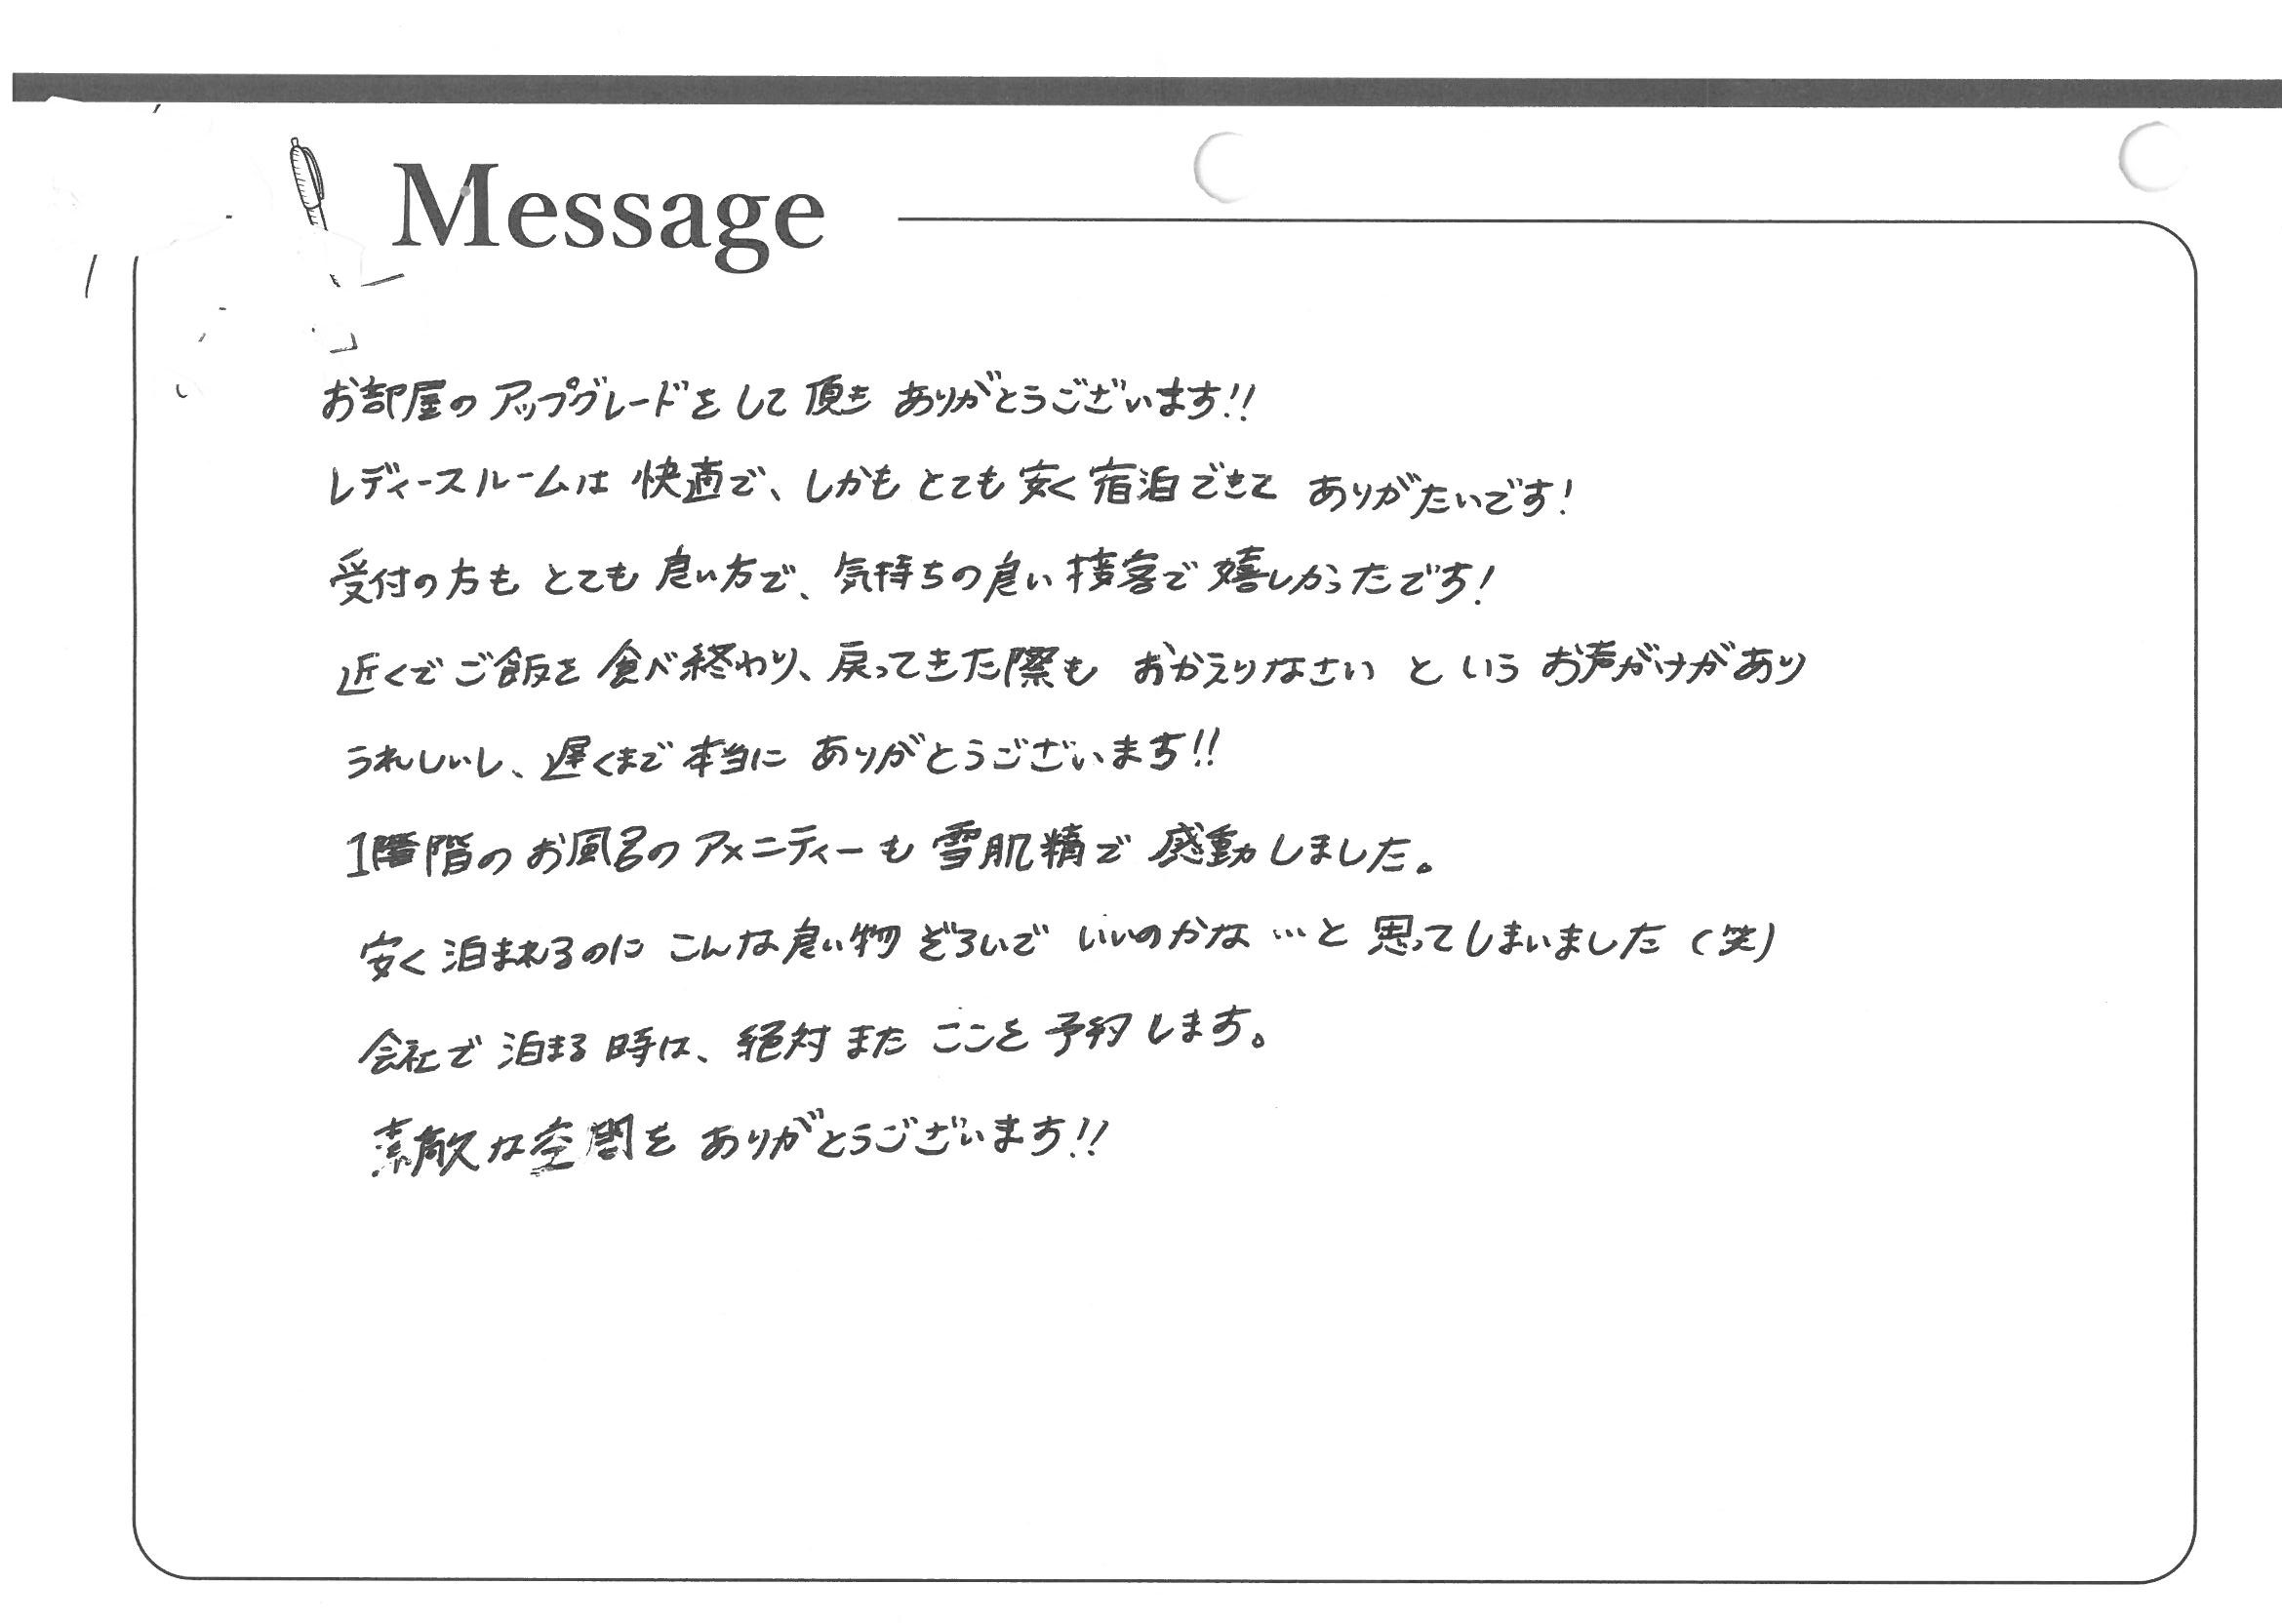 Message
お部屋のアップグレードをして頂き ありがとうございます!!
レディースルームは 快適で、しかも とても 安く 宿泊できて ありがたいです!
受付の方も とても 良い方で、気持ちの良い 接客で 嬉しかったです!
近くで ご飯を 食べ終わり、戻ってきた際も おかえりなさい と いう お声がけがあり
うれしいし、遅くまで 本当に ありがとうございます!!
1階の お風呂の アメニティーも 雪肌精で 感動しました。
安く 泊まれるのに こんな良い物 ぞろいで いいのかな…と 思ってしまいました (笑)
会社で 泊まる 時は、絶対 また ここを 予約します。
素敵な空間を ありがとうございます!!